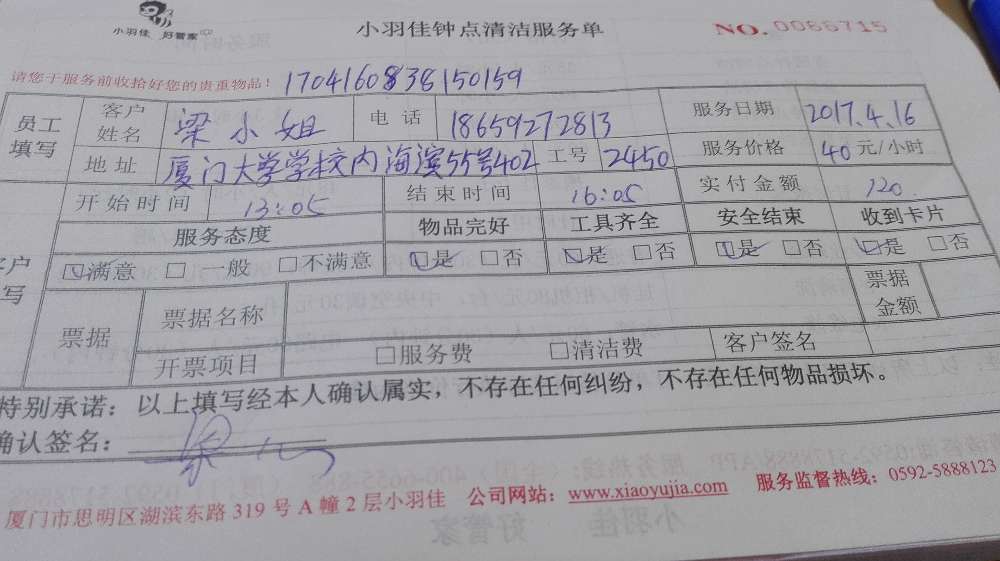 小羽佳 好管家
小羽佳钟点清洁服务单
NO. 0066715
请您于服务前收拾好您的贵重物品！ 1704160838150159
员工填写 客户姓名 梁小姐 电话 18659272813 服务日期 2017.4.16
地址 厦门大学学校内海滨55号402 工号 2450 服务价格 40 元/小时
开始时间 13:05 结束时间 16:05 实付金额 120
服务态度 物品完好 工具齐全 安全结束 收到卡片
客户填写 ☑满意 □一般 □不满意 ☑是 □否 ☑是 □否 ☑是 □否 ☑是 □否
票据 票据名称 票据金额
开票项目 □服务费 □清洁费 客户签名
特别承诺：以上填写经本人确认属实，不存在任何纠纷，不存在任何物品损坏。
确认签名：
厦门市思明区湖滨东路 319 号 A 幢 2 层小羽佳 公司网站：www.xiaoyujia.com 服务监督热线：0592-5888123